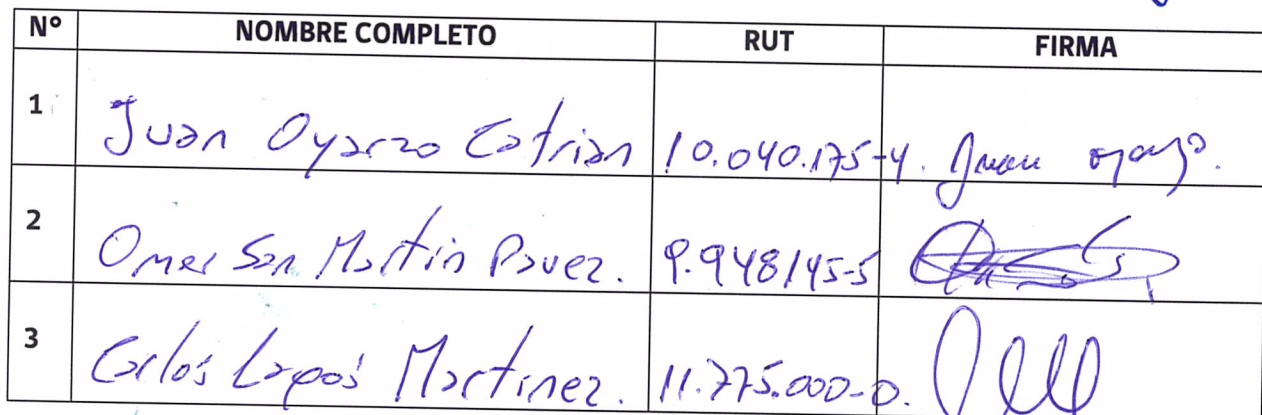 N° NOMBRE COMPLETO RUT FIRMA
1 Juan Oyarzo Catrian 10.040.175-4. Juan oyarzo.
2 Omer San Martin Pavez. 9.948145-5
3 Carlos Lagos Martinez. 11.775.000-0.